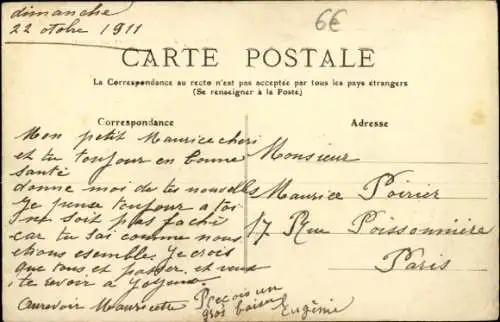 dimanche
22 otobre 1911
6€
CARTE POSTALE
La Correspondance au recto n'est pas acceptée par tous les pays étrangers
(Se renseigner à la Poste)
Correspondance
Adresse
Mon petit Maurice cheri
et tu toujour en bonne
santé
donne moi de tes nouvelles
Je pense toujour a toi
ne soit pas faché
car tu sai comme nous
etions esemble. Je crois
que tous et passer. et veux
te revoir a
Aurevoir Mauricette
Recois un
gros baiser
Eugènie
Monsieur
Maurice Poirier
17 Rue Poissonnière
Paris